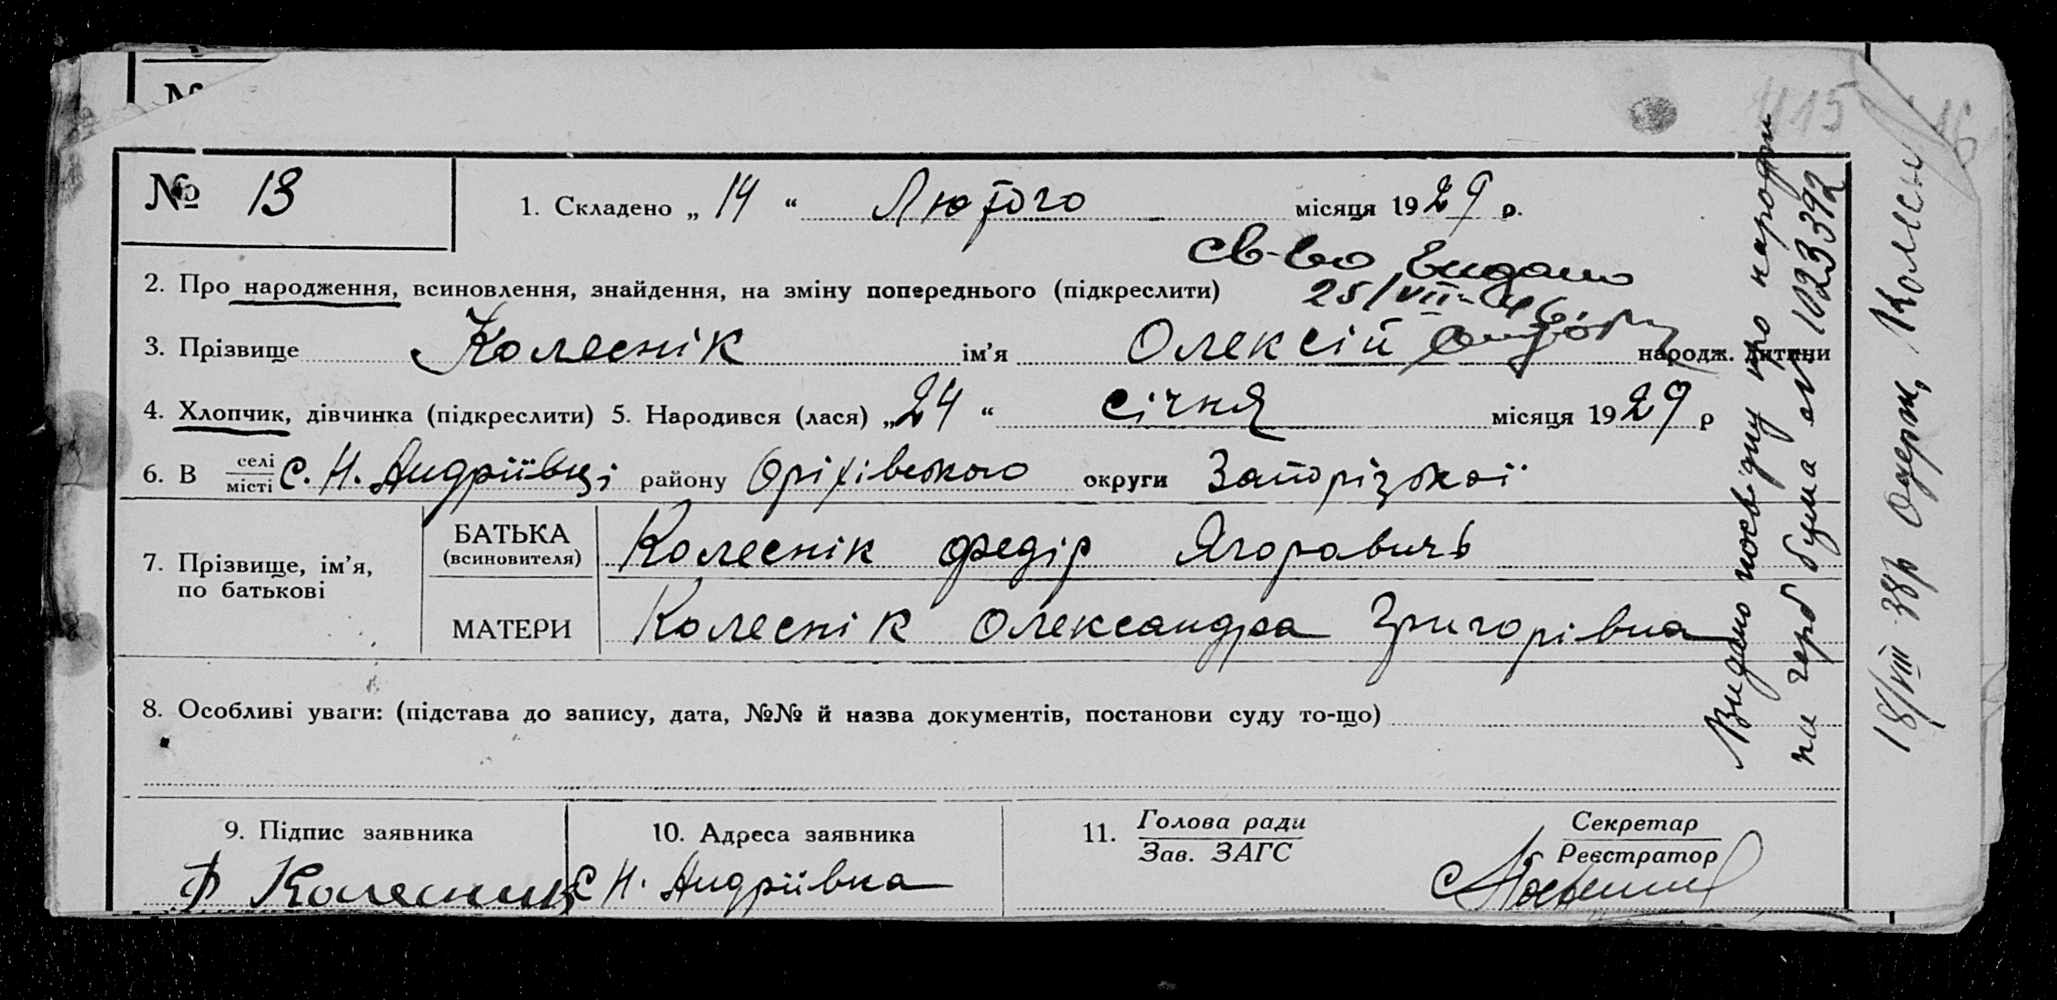 №
115
16
№ 13
1. Складено „ 14 “ Лютого місяця 1929 р.
св-во видано
2. Про народження, всиновлення, знайдення, на зміну попереднього (підкреслити)
25/VII-46
3. Прізвище Колеснік ім’я Олексій народж. дитини
4. Хлопчик, дівчинка (підкреслити) 5. Народився (лася) „ 24 “ січня місяця 1929 р
6. В селі місті С. Н. Андріївці району Оріхівського округи Запорізької
7. Прізвище, ім’я, по батькові
БАТЬКА (всиновителя) Колеснік Федір Ягоравичь
МАТЕРИ Колеснік Олександра Григорівна
8. Особливі уваги: (підстава до запису, дата, №№ й назва документів, постанови суду то-що)
9. Підпис заявника
Ф Колесник
10. Адреса заявника
С Н. Андріївка
11. Голова ради
Зав. ЗАГС
Секретар
Реєстратор
Видано посвідку про народжи
на герб бума № 1023392
18/VIII 38р Одерж. Колесн